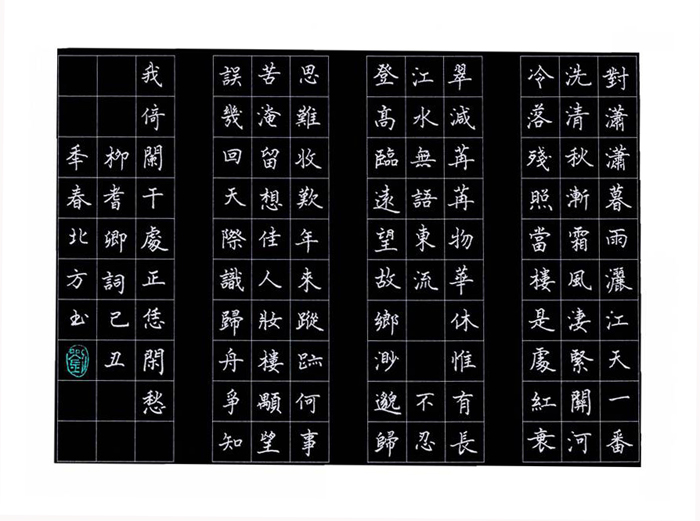 對瀟瀟暮雨灑江天一番
洗清秋漸霜風淒緊關河
冷落殘照當樓是處紅衰
翠減苒苒物華休惟有長
江水無語東流 不忍
登高臨遠望故鄉渺邈歸
思難收歎年來蹤跡何事
苦淹留想佳人妝樓顒望
誤幾回天際識歸舟爭知
我倚闌干處正恁閑愁
柳耆卿詞己丑
季春北方玉